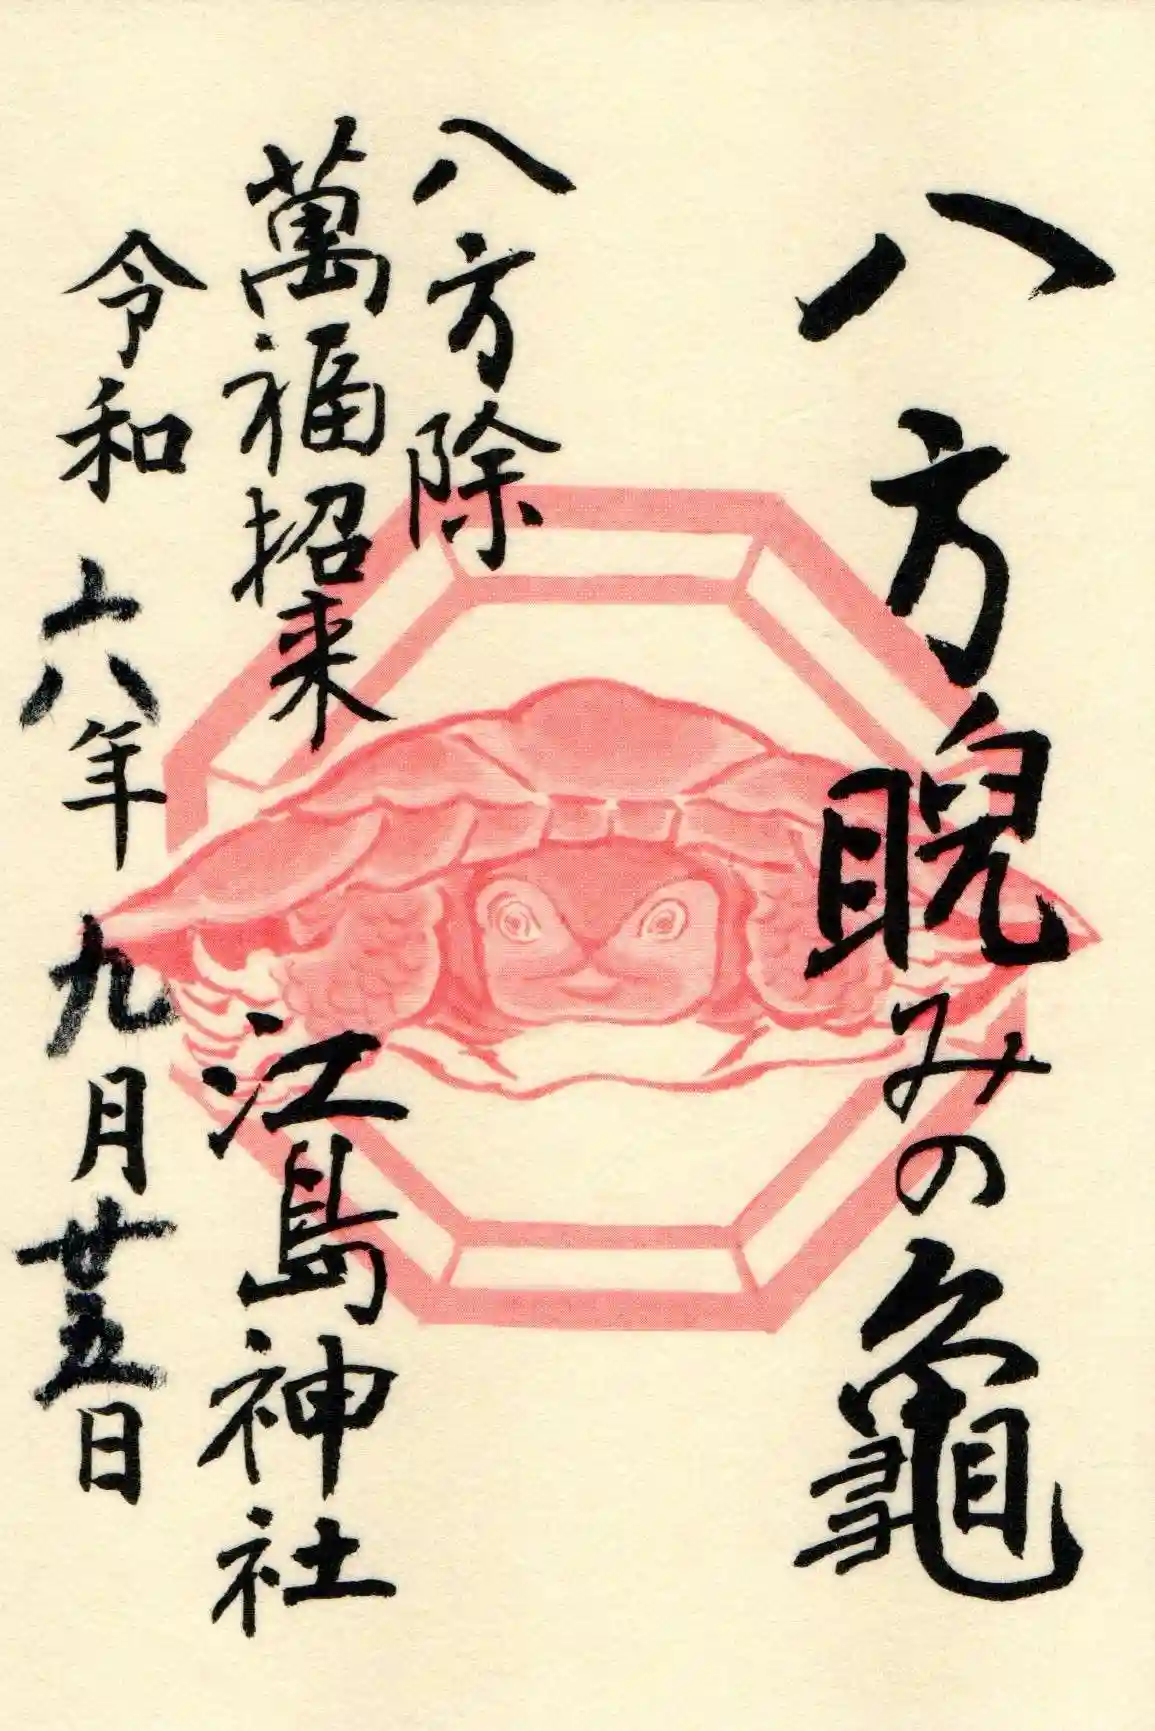 八方睨みの龜
八方除
萬福招来
江島神社
令和六年九月廿五日